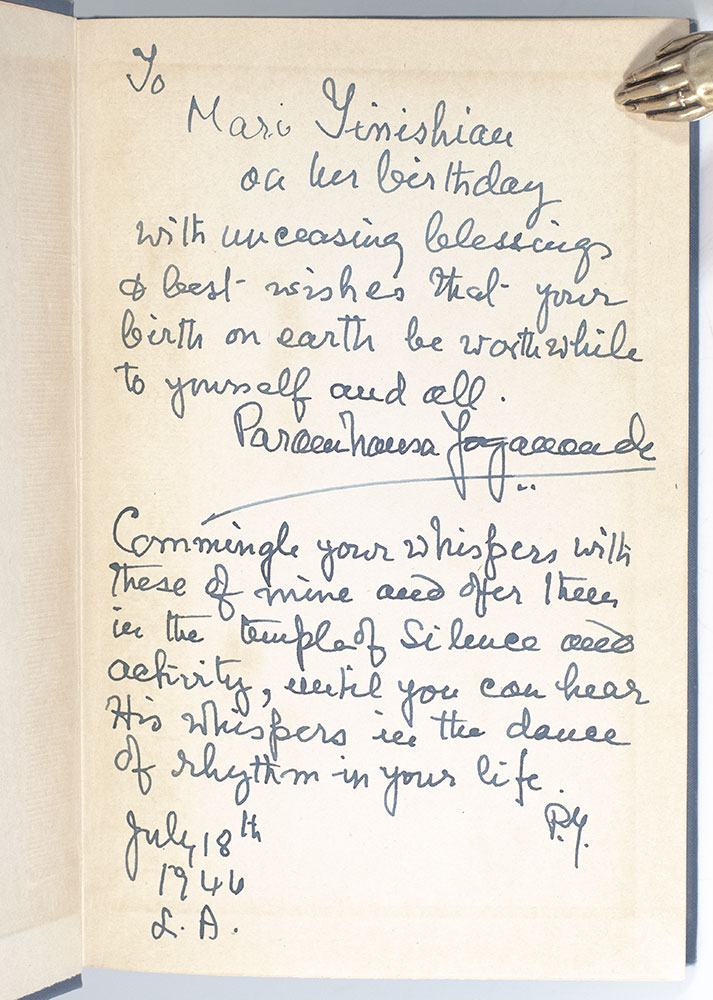 To
Mari Yinishian
on her birthday
with unceasing blessings
& best wishes that your
birth on earth be worthwhile
to yourself and all.
Paramhansa Yogananda
Commingle your whispers with
these of mine and offer them
in the temple of Silence and
activity, until you can hear
His whispers in the dance
of rhythm in your life.
P.Y.
July 18th
1946
L. A.